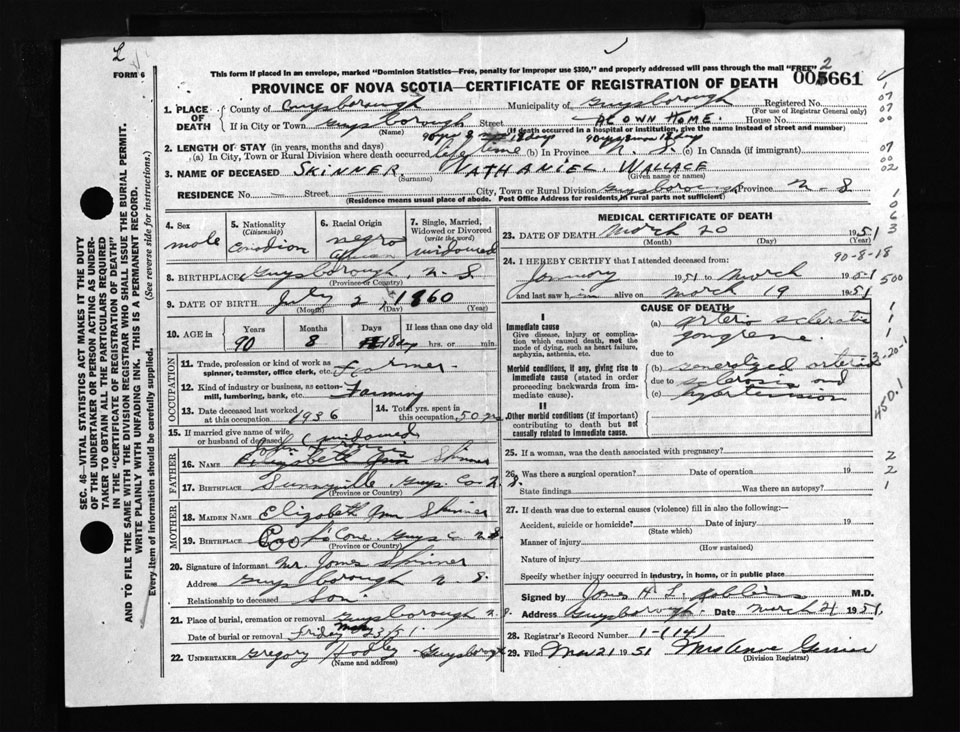 FORM 6
This form if placed in an envelope, marked "Dominion Statistics—Free, penalty for improper use $300," and properly addressed will pass through the mail "FREE"
005661
2
PROVINCE OF NOVA SCOTIA—CERTIFICATE OF REGISTRATION OF DEATH
1. PLACE OF DEATH
County of Guysborough Municipality of Guysborough Registered No.
(For use of Registrar General only)
If in City or Town Guysborough Street At Own Home. House No.
(Name) (If death occurred in a hospital or institution, give the name instead of street and number)
2. LENGTH OF STAY (in years, months and days)
(a) In City, Town or Rural Division where death occurred life time (b) In Province N. S. (c) In Canada (if immigrant)
3. NAME OF DECEASED SKINNER. NATHANIEL. WALLACE
(Surname) (Given name or names)
RESIDENCE No. — Street City, Town or Rural Division Guysborough Province N-S
(Residence means usual place of abode. Post Office Address for residents in rural parts not sufficient)
4. Sex
male
5. Nationality (Citizenship)
Canadian
6. Racial Origin
negro
African
7. Single, Married, Widowed or Divorced (write the word)
widowed
8. BIRTHPLACE Guysborough, N. S.
(Province or Country)
9. DATE OF BIRTH July 2, 1860
(Month) (Day)
10. AGE in
Years
90
Months
8
Days
18 days
If less than one day old
hrs. or min.
OCCUPATION
11. Trade, profession or kind of work as spinner, teamster, office clerk, etc. Farmer
12. Kind of industry or business, as cotton-mill, lumbering, bank, etc. Farming
13. Date deceased last worked at this occupation 1936
14. Total yrs. spent in this occupation 50
15. If married give name of wife or husband of deceased widowed
FATHER
16. NAME Skinner
17. BIRTHPLACE Sunnyville Guys Co N. S.
(Province or Country)
MOTHER
18. MAIDEN NAME Elizabeth Ann Skinner
19. BIRTHPLACE Guys Co N. S.
(Province or Country)
20. Signature of informant Mr. James Skinner
Address Guysborough N. S.
Relationship to deceased Son
21. Place of burial, cremation or removal Guysborough N. S.
Date of burial or removal Friday 23/51.
22. UNDERTAKER Gregory Hadley Guysborough
(Name and address)
MEDICAL CERTIFICATE OF DEATH
23. DATE OF DEATH March 20 1951
(Month) (Day) (Year)
90-8-18
24. I HEREBY CERTIFY that I attended deceased from:
January 1951 to March 1951
and last saw him alive on March 19 1951
CAUSE OF DEATH
I
Immediate cause
Give disease, injury or complication which caused death, not the mode of dying, such as heart failure, asphyxia, asthenia, etc.
(a) Arterio sclerotic gangrene.
due to
Morbid conditions, if any, giving rise to immediate cause (stated in order proceeding backwards from immediate cause).
(b) generalized arterio
due to sclerosis and
(c) hypertension
II
Other morbid conditions (if important) contributing to death but not causally related to immediate cause.
25. If a woman, was the death associated with pregnancy?
26. Was there a surgical operation? Date of operation 19
State findings Was there an autopsy?
27. If death was due to external causes (violence) fill in also the following:—
Accident, suicide or homicide? Date of injury 19
(State which)
Manner of injury
(How sustained)
Nature of injury
Specify whether injury occurred in industry, in home, or in public place
Signed by James H. L. Robbins M.D.
Address Guysborough. Date March 21 1951.
28. Registrar's Record Number 1-(14)
29. Filed Mar 21 1951
(Division Registrar)
SEC. 46—VITAL STATISTICS ACT MAKES IT THE DUTY OF THE UNDERTAKER OR PERSON ACTING AS UNDERTAKER TO OBTAIN ALL THE PARTICULARS REQUIRED IN THE "CERTIFICATE OF REGISTRATION OF DEATH" AND TO FILE THE SAME WITH THE DIVISION REGISTRAR WHO SHALL ISSUE THE BURIAL PERMIT.
WRITE PLAINLY WITH UNFADING INK. THIS IS A PERMANENT RECORD.
Every item of information should be carefully supplied. (See reverse side for instructions.)